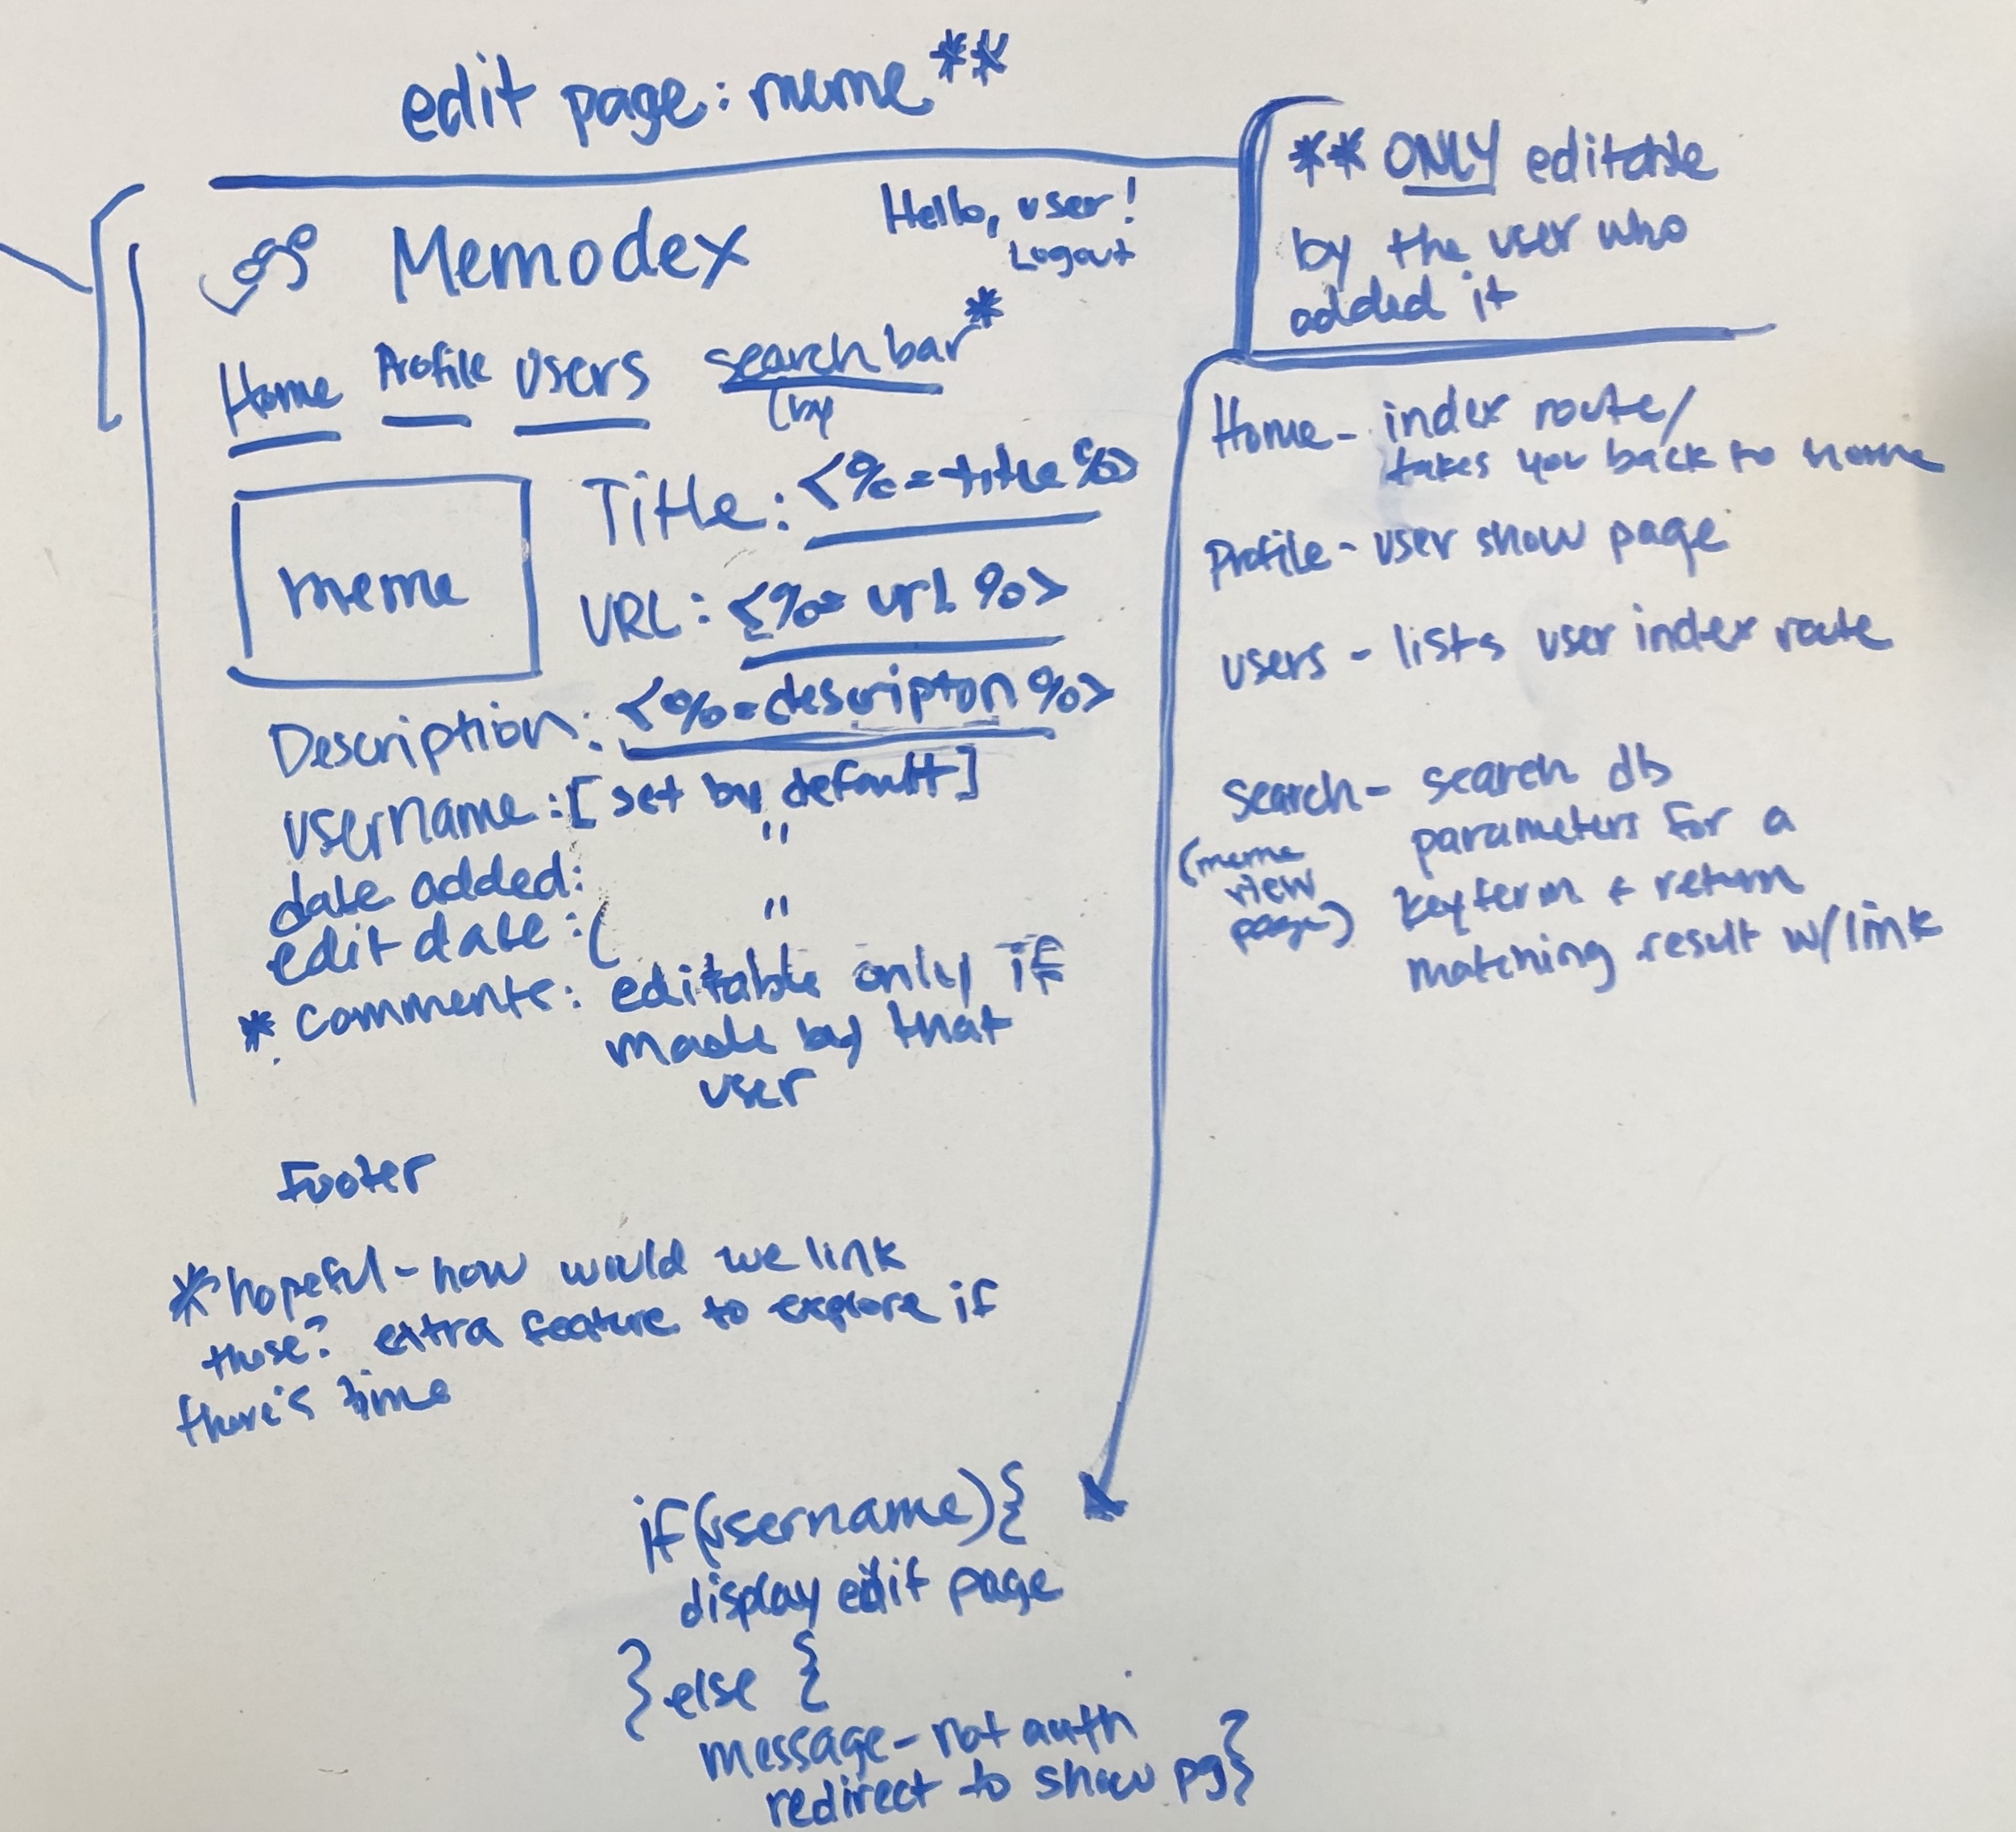 edit page: meme**
Memodex
Hello, user!
Logout
Home Profile Users search bar*
(by
meme
Title: <%= title %>
URL: <%= url %>
Description: <%= descripton %>
username: [set by default]
date added: "
edit date: ( "
* Comments: editable only if
made by that
user
Footer
*hopeful - how would we link
those? extra feature to explore if
there's time
** ONLY editable
by the user who
added it
Home - index route/
takes you back to home
Profile - user show page
users - lists user index route
search - search db
parameters for a
(meme
view
page)
key term + return
matching result w/link
if(username){
display edit page
} else {
message - not auth
redirect to show pg}